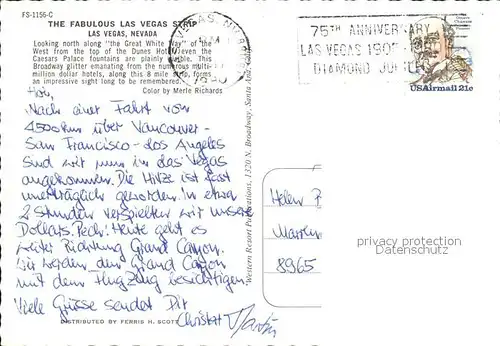 FS-1156-C
THE FABULOUS LAS VEGAS STRIP
LAS VEGAS, NEVADA
Looking north along "the Great White Way" of the
West from the top of the Dunes Hotel, even the
Caesars Palace fountains are plainly visible. This
Broadway glitter emanating from the numerous multi-
million dollar hotels, along this 8 mile strip, forms
an impressive sight long to be remembered.
Color by Merle Richards
Hoi,
Nach einer Fahrt von
4500 km über Vancouver-
San Francisco - Los Angeles
sind wir nun in das Vegas
angekommen. Die Hitze ist fast
unerträglich geworden. In etwa
2 Stunden verspielten wir unsere
Dollars. Pech! Heute geht es
weiter Richtung Grand Canyon.
Wir werden den Grand Canyon
mit dem Flugzeug besichtigen.
Viele Grüsse sendet Dir
Christa + Martin
DISTRIBUTED BY FERRIS H. SCOTT
Western Resort Publications, 1320 N. Broadway, Santa Ana
75TH ANNIVERSARY
LAS VEGAS 1905
DIAMOND JUBILEE
USAirmail 21c
Helen
8965
privacy protection
Datenschutz